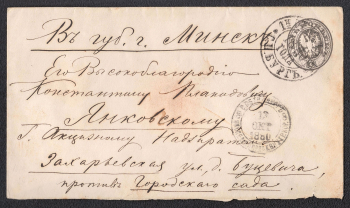 Въ губ. г. Минскъ
Его Высокоблагородію
Константину
Янковскому
г. Акцизному Надзирателю
Захарьевская ул., д. Гуцевича,
противъ Городскаго сада.
12
1880